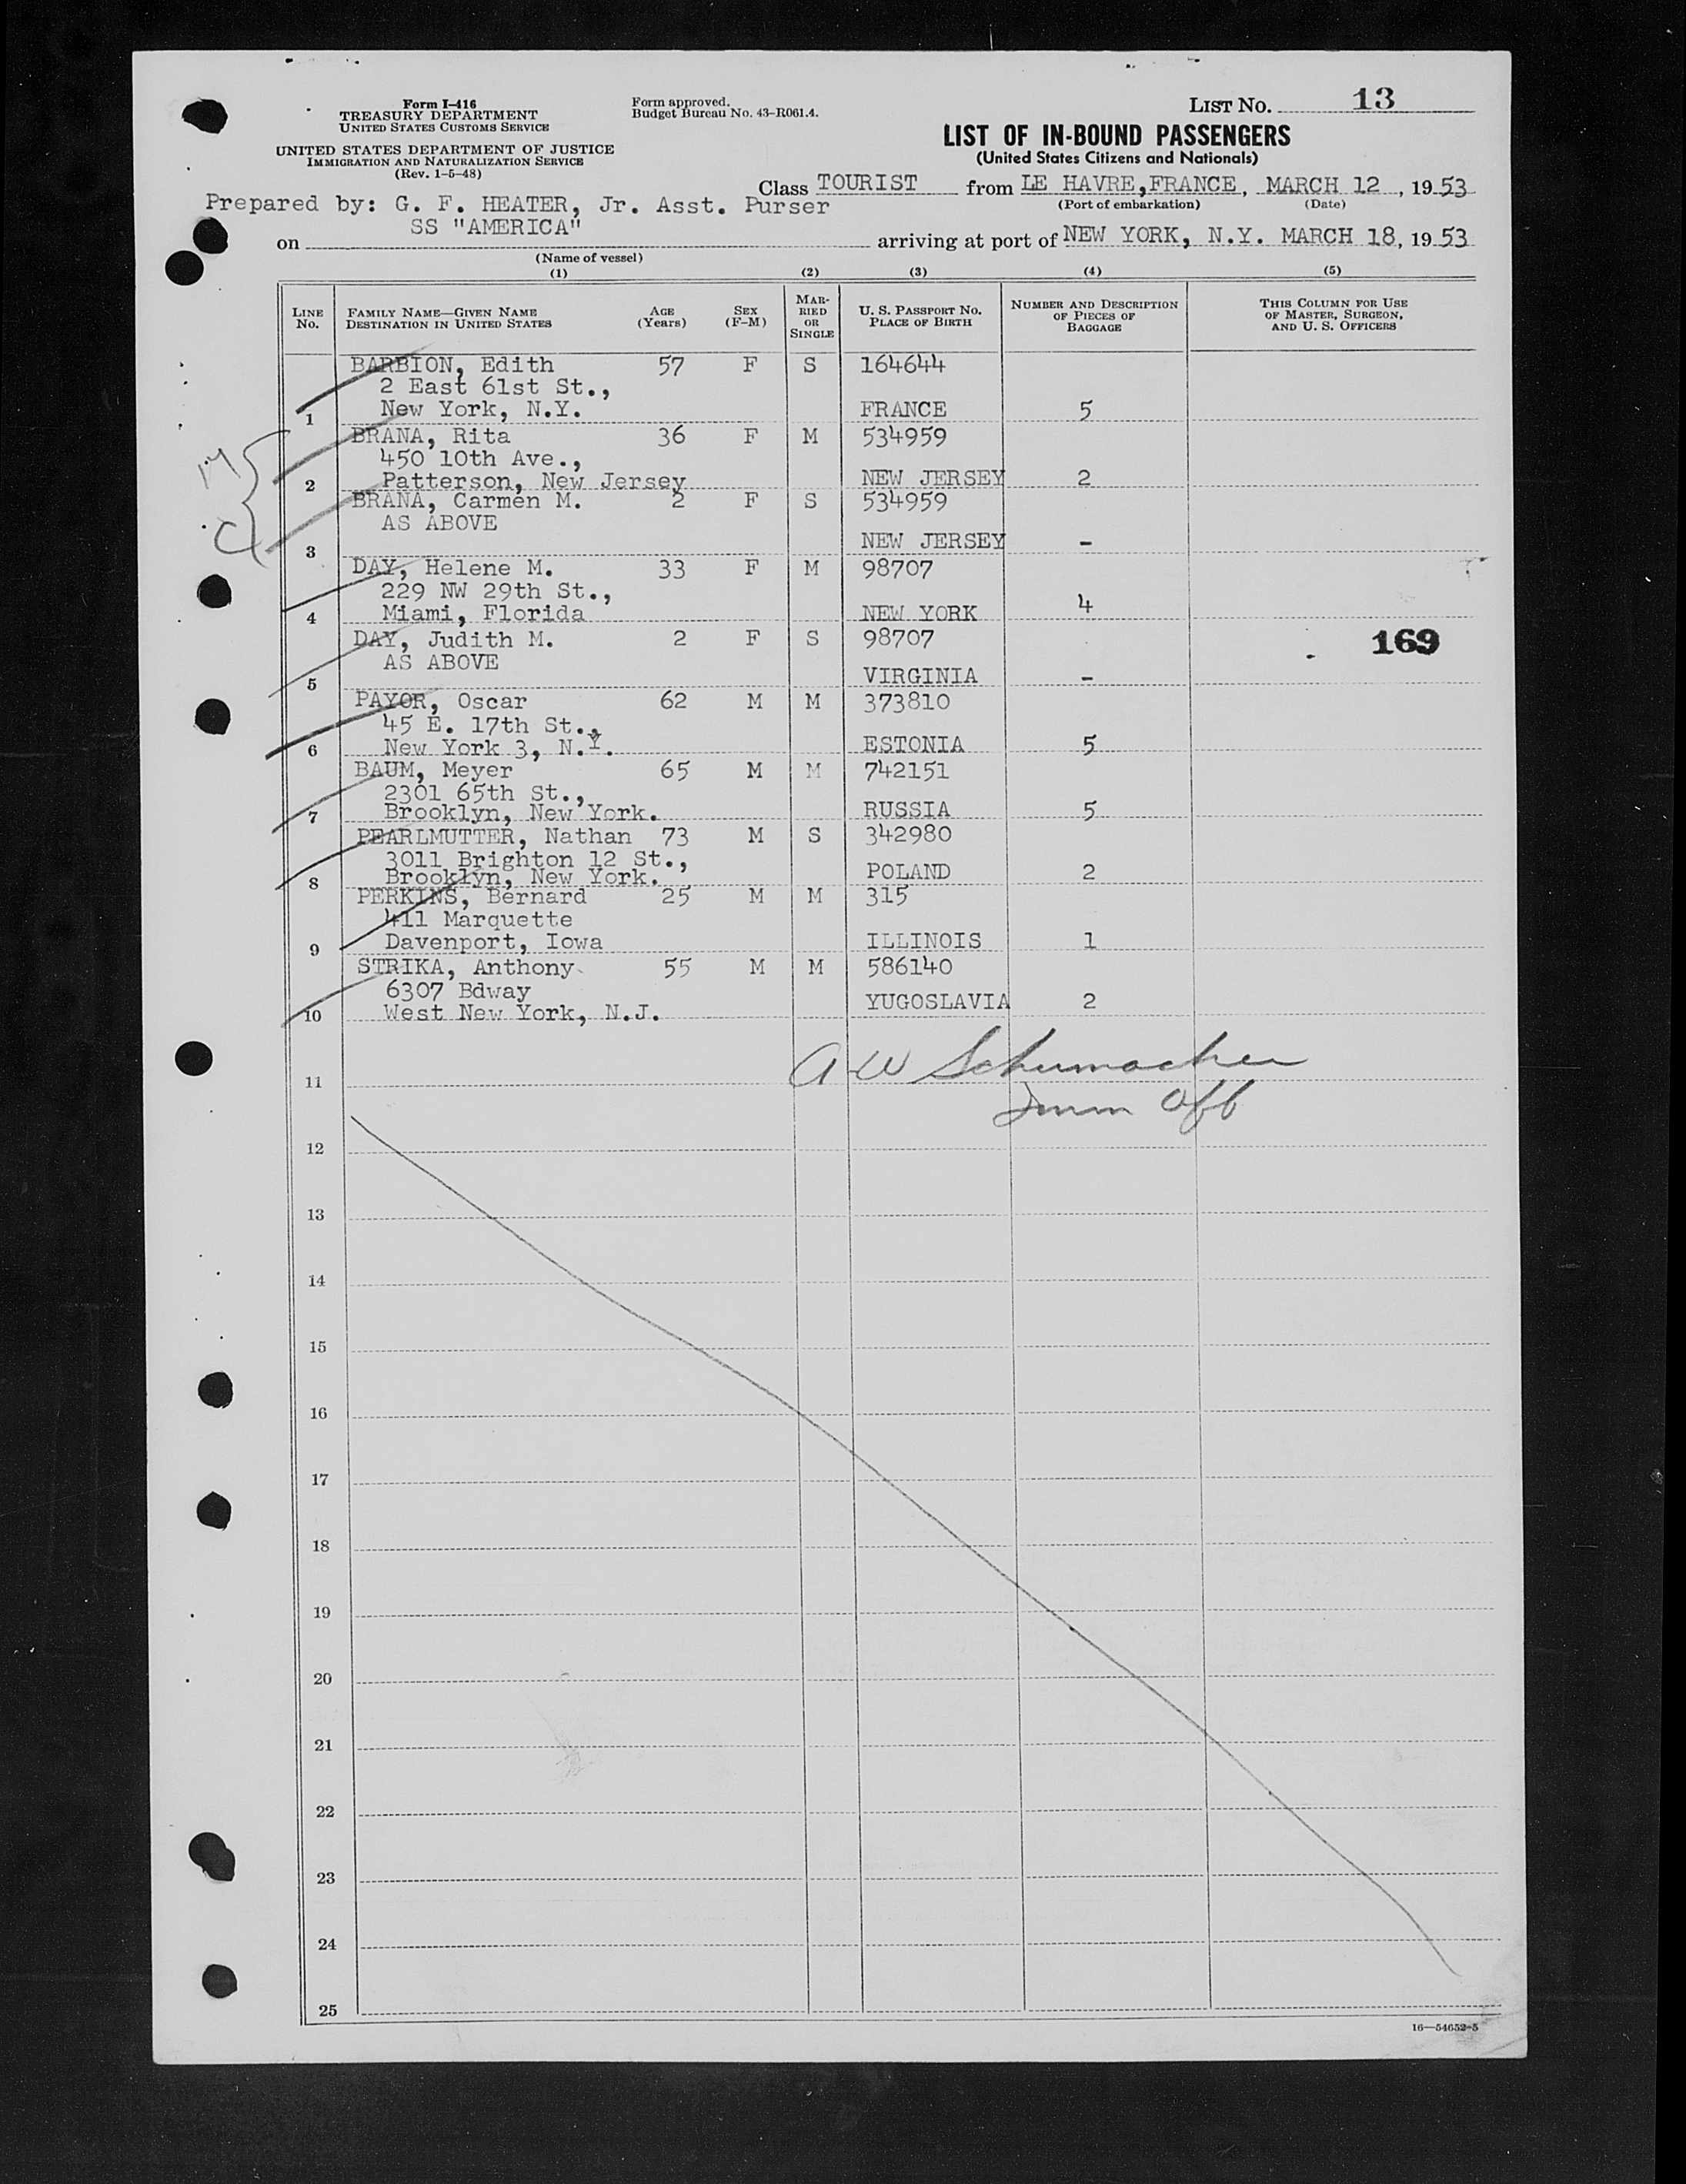 Form I-416
TREASURY DEPARTMENT
UNITED STATES CUSTOMS SERVICE
UNITED STATES DEPARTMENT OF JUSTICE
IMMIGRATION AND NATURALIZATION SERVICE
(Rev. 1-5-48)
Form approved.
Budget Bureau No. 43-R061.4.
LIST NO. 13
LIST OF IN-BOUND PASSENGERS
(United States Citizens and Nationals)
Class TOURIST from LE HAVRE, FRANCE, MARCH 12, 1953
(Port of embarkation) (Date)
Prepared by: G. F. HEATER, Jr. Asst. Purser
on SS "AMERICA" arriving at port of NEW YORK, N.Y. MARCH 18, 1953
(Name of vessel)
(1) (2) (3) (4) (5)
LINE NO. FAMILY NAME—GIVEN NAME DESTINATION IN UNITED STATES AGE (Years) SEX (F-M) MARRIED OR SINGLE U. S. PASSPORT NO. PLACE OF BIRTH NUMBER AND DESCRIPTION OF PIECES OF BAGGAGE THIS COLUMN FOR USE OF MASTER, SURGEON, AND U. S. OFFICERS
BARBION, Edith 57 F S 164644
2 East 61st St.,
1 New York, N.Y. FRANCE 5
BRANA, Rita 36 F M 534959
450 10th Ave.,
2 Patterson, New Jersey NEW JERSEY 2
BRANA, Carmen M. 2 F S 534959
AS ABOVE
3 NEW JERSEY -
DAY, Helene M. 33 F M 98707
229 NW 29th St.,
4 Miami, Florida NEW YORK 4
DAY, Judith M. 2 F S 98707 169
AS ABOVE
5 VIRGINIA -
PAYOR, Oscar 62 M M 373810
45 E. 17th St.,
6 New York 3, N.Y. ESTONIA 5
BAUM, Meyer 65 M M 742151
2301 65th St.,
7 Brooklyn, New York. RUSSIA 5
PEARLMUTTER, Nathan 73 M S 342980
3011 Brighton 12 St.,
8 Brooklyn, New York. POLAND 2
PERKINS, Bernard 25 M M 315
411 Marquette
9 Davenport, Iowa ILLINOIS 1
STRIKA, Anthony 55 M M 586140
6307 Bdway
10 West New York, N.J. YUGOSLAVIA 2
11 A W Schumacher
Imm Off
12
13
14
15
16
17
18
19
20
21
22
23
24
25
16—54652-5